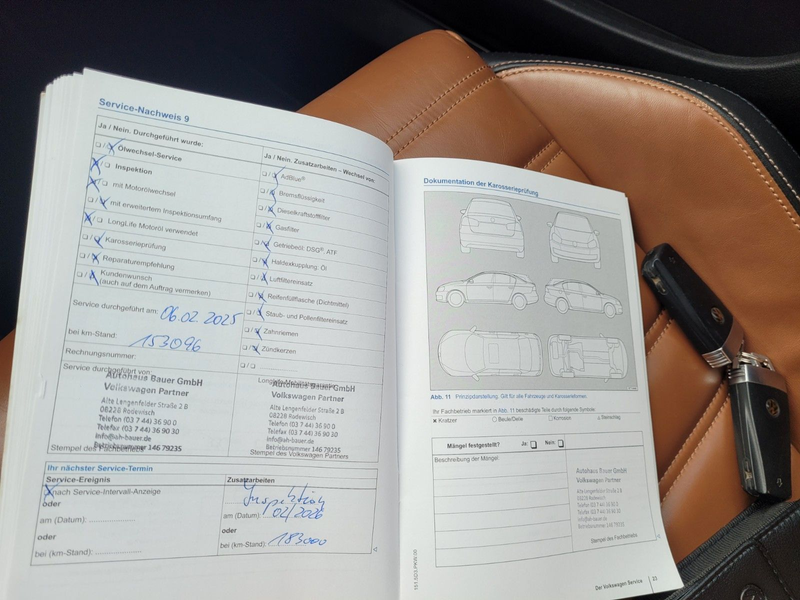 Service-Nachweis 9
Ja / Nein. Durchgeführt wurde:
Ölwechsel-Service
Inspektion
mit Motorölwechsel
mit erweitertem Inspektionsumfang
LongLife Motoröl verwendet
Karosserieprüfung
Reparaturempfehlung
Kundenwunsch
(auch auf dem Auftrag vermerken)
Service durchgeführt am: 06.02 2025
bei km-Stand: 153096
Rechnungsnummer:
Service durchgeführt von:
Autohaus Bauer GmbH
Volkswagen Partner
Alte Lengenfelder Straße 2 B
08228 Rodewisch
Telefon (03 7 44) 36 90 0
Telefax (03 7 44) 36 90 30
info@ah-bauer.de
Betriebsnummer 146 79235
Stempel des Fachbetriebs
Ja / Nein. Zusatzarbeiten – Wechsel von:
AdBlue®
Bremsflüssigkeit
Dieselkraftstofffilter
Gasfilter
Getriebeöl: DSG®, ATF
Haldexkupplung: Öl
Luftfiltereinsatz
Reifenfüllflasche (Dichtmittel)
Staub- und Pollenfiltereinsatz
Zahnriemen
Zündkerzen
Autohaus Bauer GmbH
Volkswagen Partner
Alte Lengenfelder Straße 2 B
08228 Rodewisch
Telefon (03 7 44) 36 90 0
Telefax (03 7 44) 36 90 30
info@ah-bauer.de
Betriebsnummer 146 79235
Stempel des Volkswagen Partners
Ihr nächster Service-Termin
Service-Ereignis
nach Service-Intervall-Anzeige
oder
am (Datum):
oder
bei (km-Stand):
Zusatzarbeiten
Inspektion
am (Datum): 02/2026
oder
bei (km-Stand): 183000
Dokumentation der Karosserieprüfung
Abb. 11 Prinzipdarstellung. Gilt für alle Fahrzeuge und Karosserieformen.
Ihr Fachbetrieb markiert in Abb. 11 beschädigte Teile durch folgende Symbole:
Kratzer Beule/Delle Korrosion Steinschlag
Mängel festgestellt? Ja: Nein:
Beschreibung der Mängel:
Autohaus Bauer GmbH
Volkswagen Partner
Alte Lengenfelder Straße 2 B
08228 Rodewisch
Telefon (03 7 44) 36 90 0
Telefax (03 7 44) 36 90 30
info@ah-bauer.de
Betriebsnummer 146 79235
Stempel des Fachbetriebs
Der Volkswagen Service 23